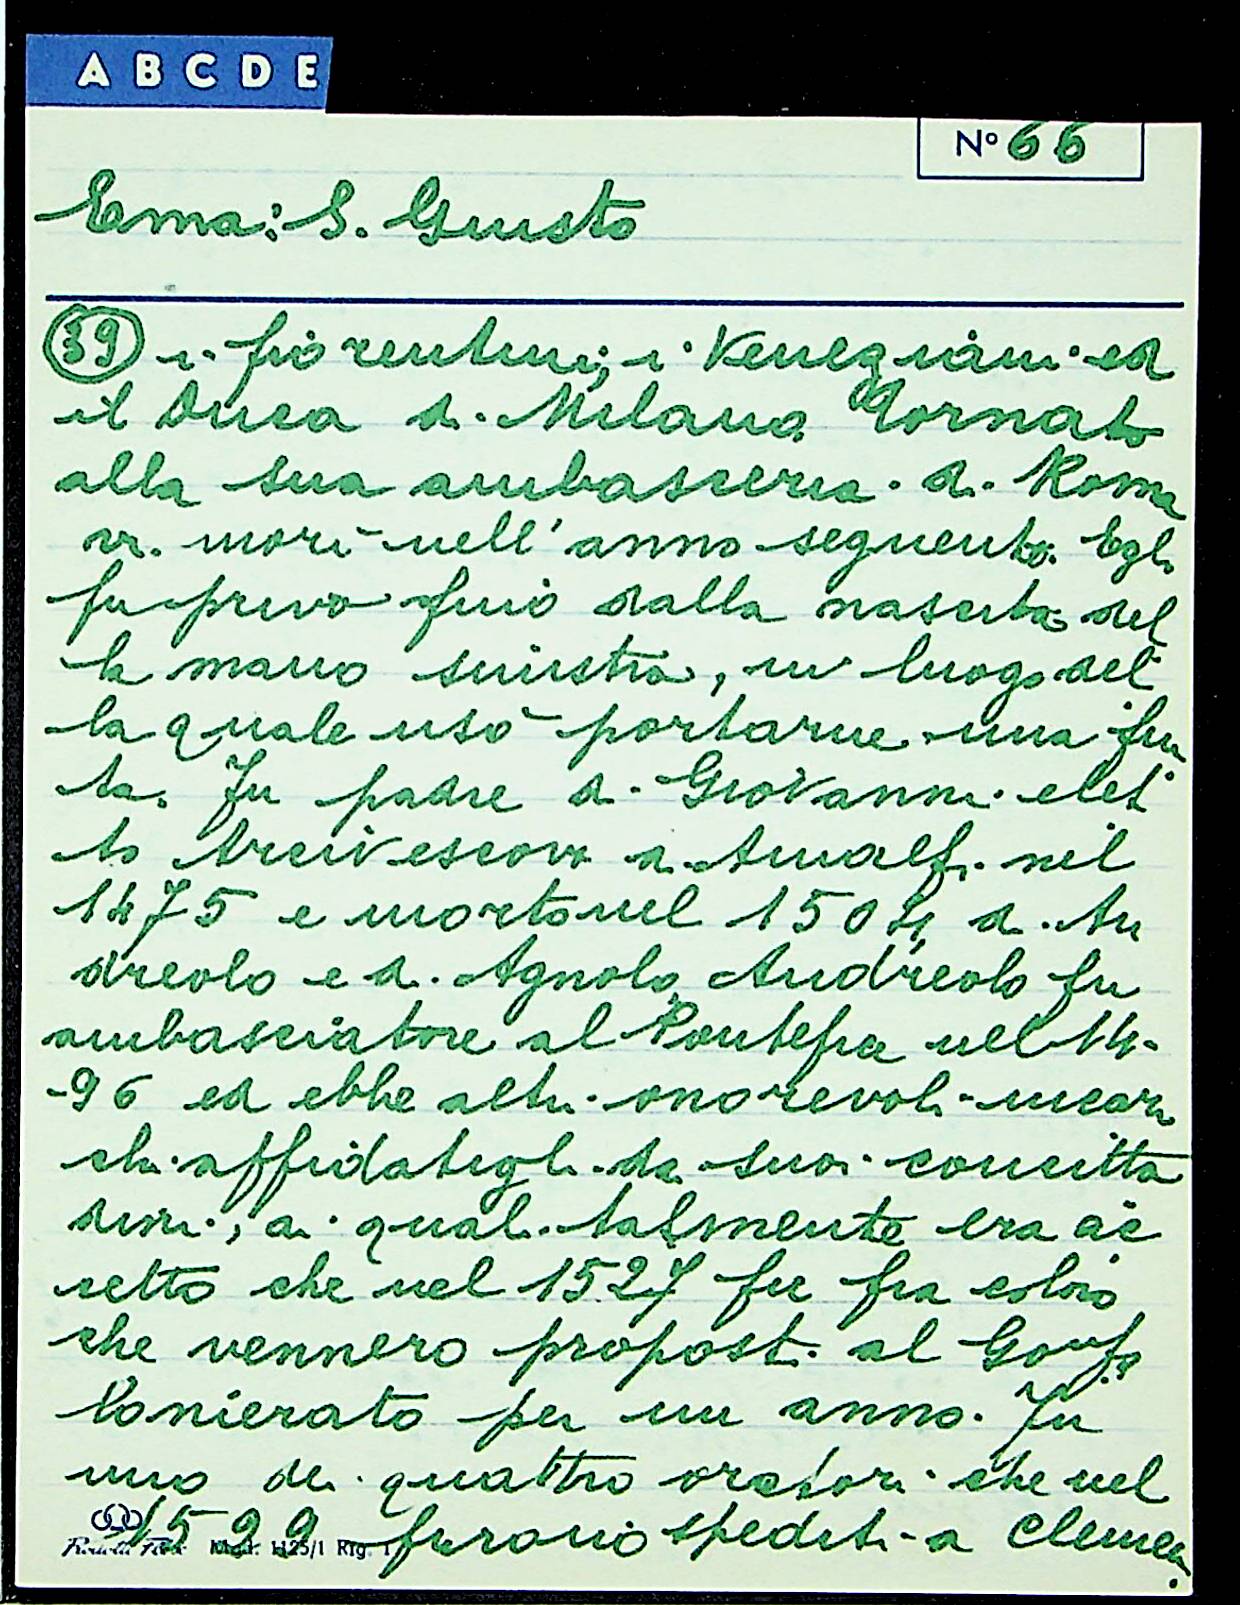 A B C D E
Nº 66
Ema: S. Giusto
39 i fiorentini, i Veneziani ed
il Duca di Milano. Tornato
alla sua ambasceria di Roma
vi morì nell'anno seguente. Egli
fu privo fino dalla nascita del
la mano sinistra, in luogo del
la quale usò portarne una fin
ta. Fu padre di Giovanni elet
to Arcivescovo di Amalfi nel
1475 e morto nel 1504 di An
dreolo e di Agnolo. Andreolo fu
ambasciatore al Pontefice nel 14-
-96 ed ebbe altri onorevoli incari
chi affidatigli da suoi concitta
dini, ai quali talmente era ac
cetto che nel 1527 fu fra coloro
che vennero proposti al Gonfa
lonierato per un anno. Fu
uno dei quattro oratori che nel
1529 furono spediti a Clemen
Mod. 1125/1 Rig. 1